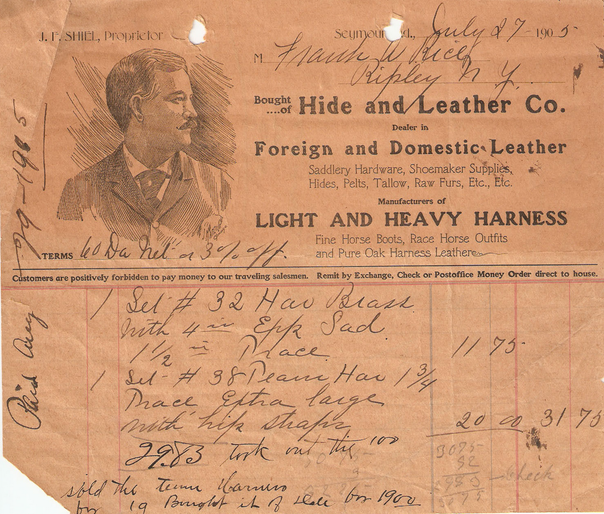 J. F. SHIEL, Proprietor
Seymour, Ind., July 27 - 1905
M Frank W Rice
Ripley N Y.
Bought
....of Hide and Leather Co.
Dealer in
Foreign and Domestic Leather
Saddlery Hardware, Shoemaker Supplies,
Hides, Pelts, Tallow, Raw Furs, Etc., Etc.
Manufacturers of
LIGHT AND HEAVY HARNESS
Fine Horse Boots, Race Horse Outfits
and Pure Oak Harness Leather
TERMS 60 Da Net or 3% off.
Customers are positively forbidden to pay money to our traveling salesmen. Remit by Exchange, Check or Postoffice Money Order direct to house.
Paid Aug 29-1905
1 Set # 32 Har Brass
with 4 in Sad
1 1/2 in Trace 11 75
1 Set # 38 Team Har 1 3/4
Trace Extra large
with hip straps 20 00 31 75
29.83 took out the 100
check
sold the team Harness
for 19 Bought it of for 1900